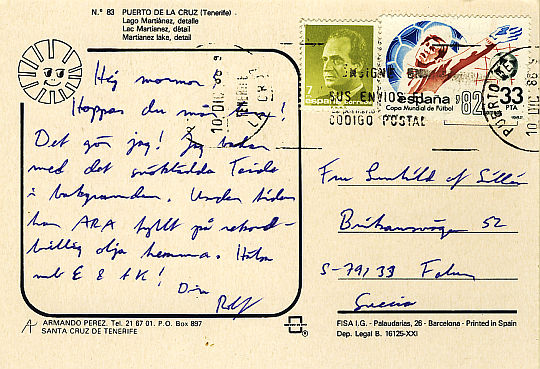 N.º 83 PUERTO DE LA CRUZ (Tenerife)
Lago Martiánez, detalle
Lac Martianez, détail
Martianez lake, detail
Hej mormor!
Hoppas du mår bra!
Det gör jag! Jag badar
med det snöklädda Teide
i bakgrunden. Under tiden
har ARA fyllt på rekord-
billig olja hemma. Hälsa
E & K!
Din
Rolf
ARMANDO PEREZ. Tel. 21 67 01. P.O. Box 897
SANTA CRUZ DE TENERIFE
7
españa
españa '82
Copa Mundial de Fútbol
33
PTA
CONSIGNE EN
SUS ENVIOS
CODIGO POSTAL
10 DIC
PUERTO
Fru Gunhild af
52
S-791 33 Falun
Suecia
FISA I.G. - Palaudarias, 26 - Barcelona - Printed in Spain
Dep. Legal B. 16125-XXI